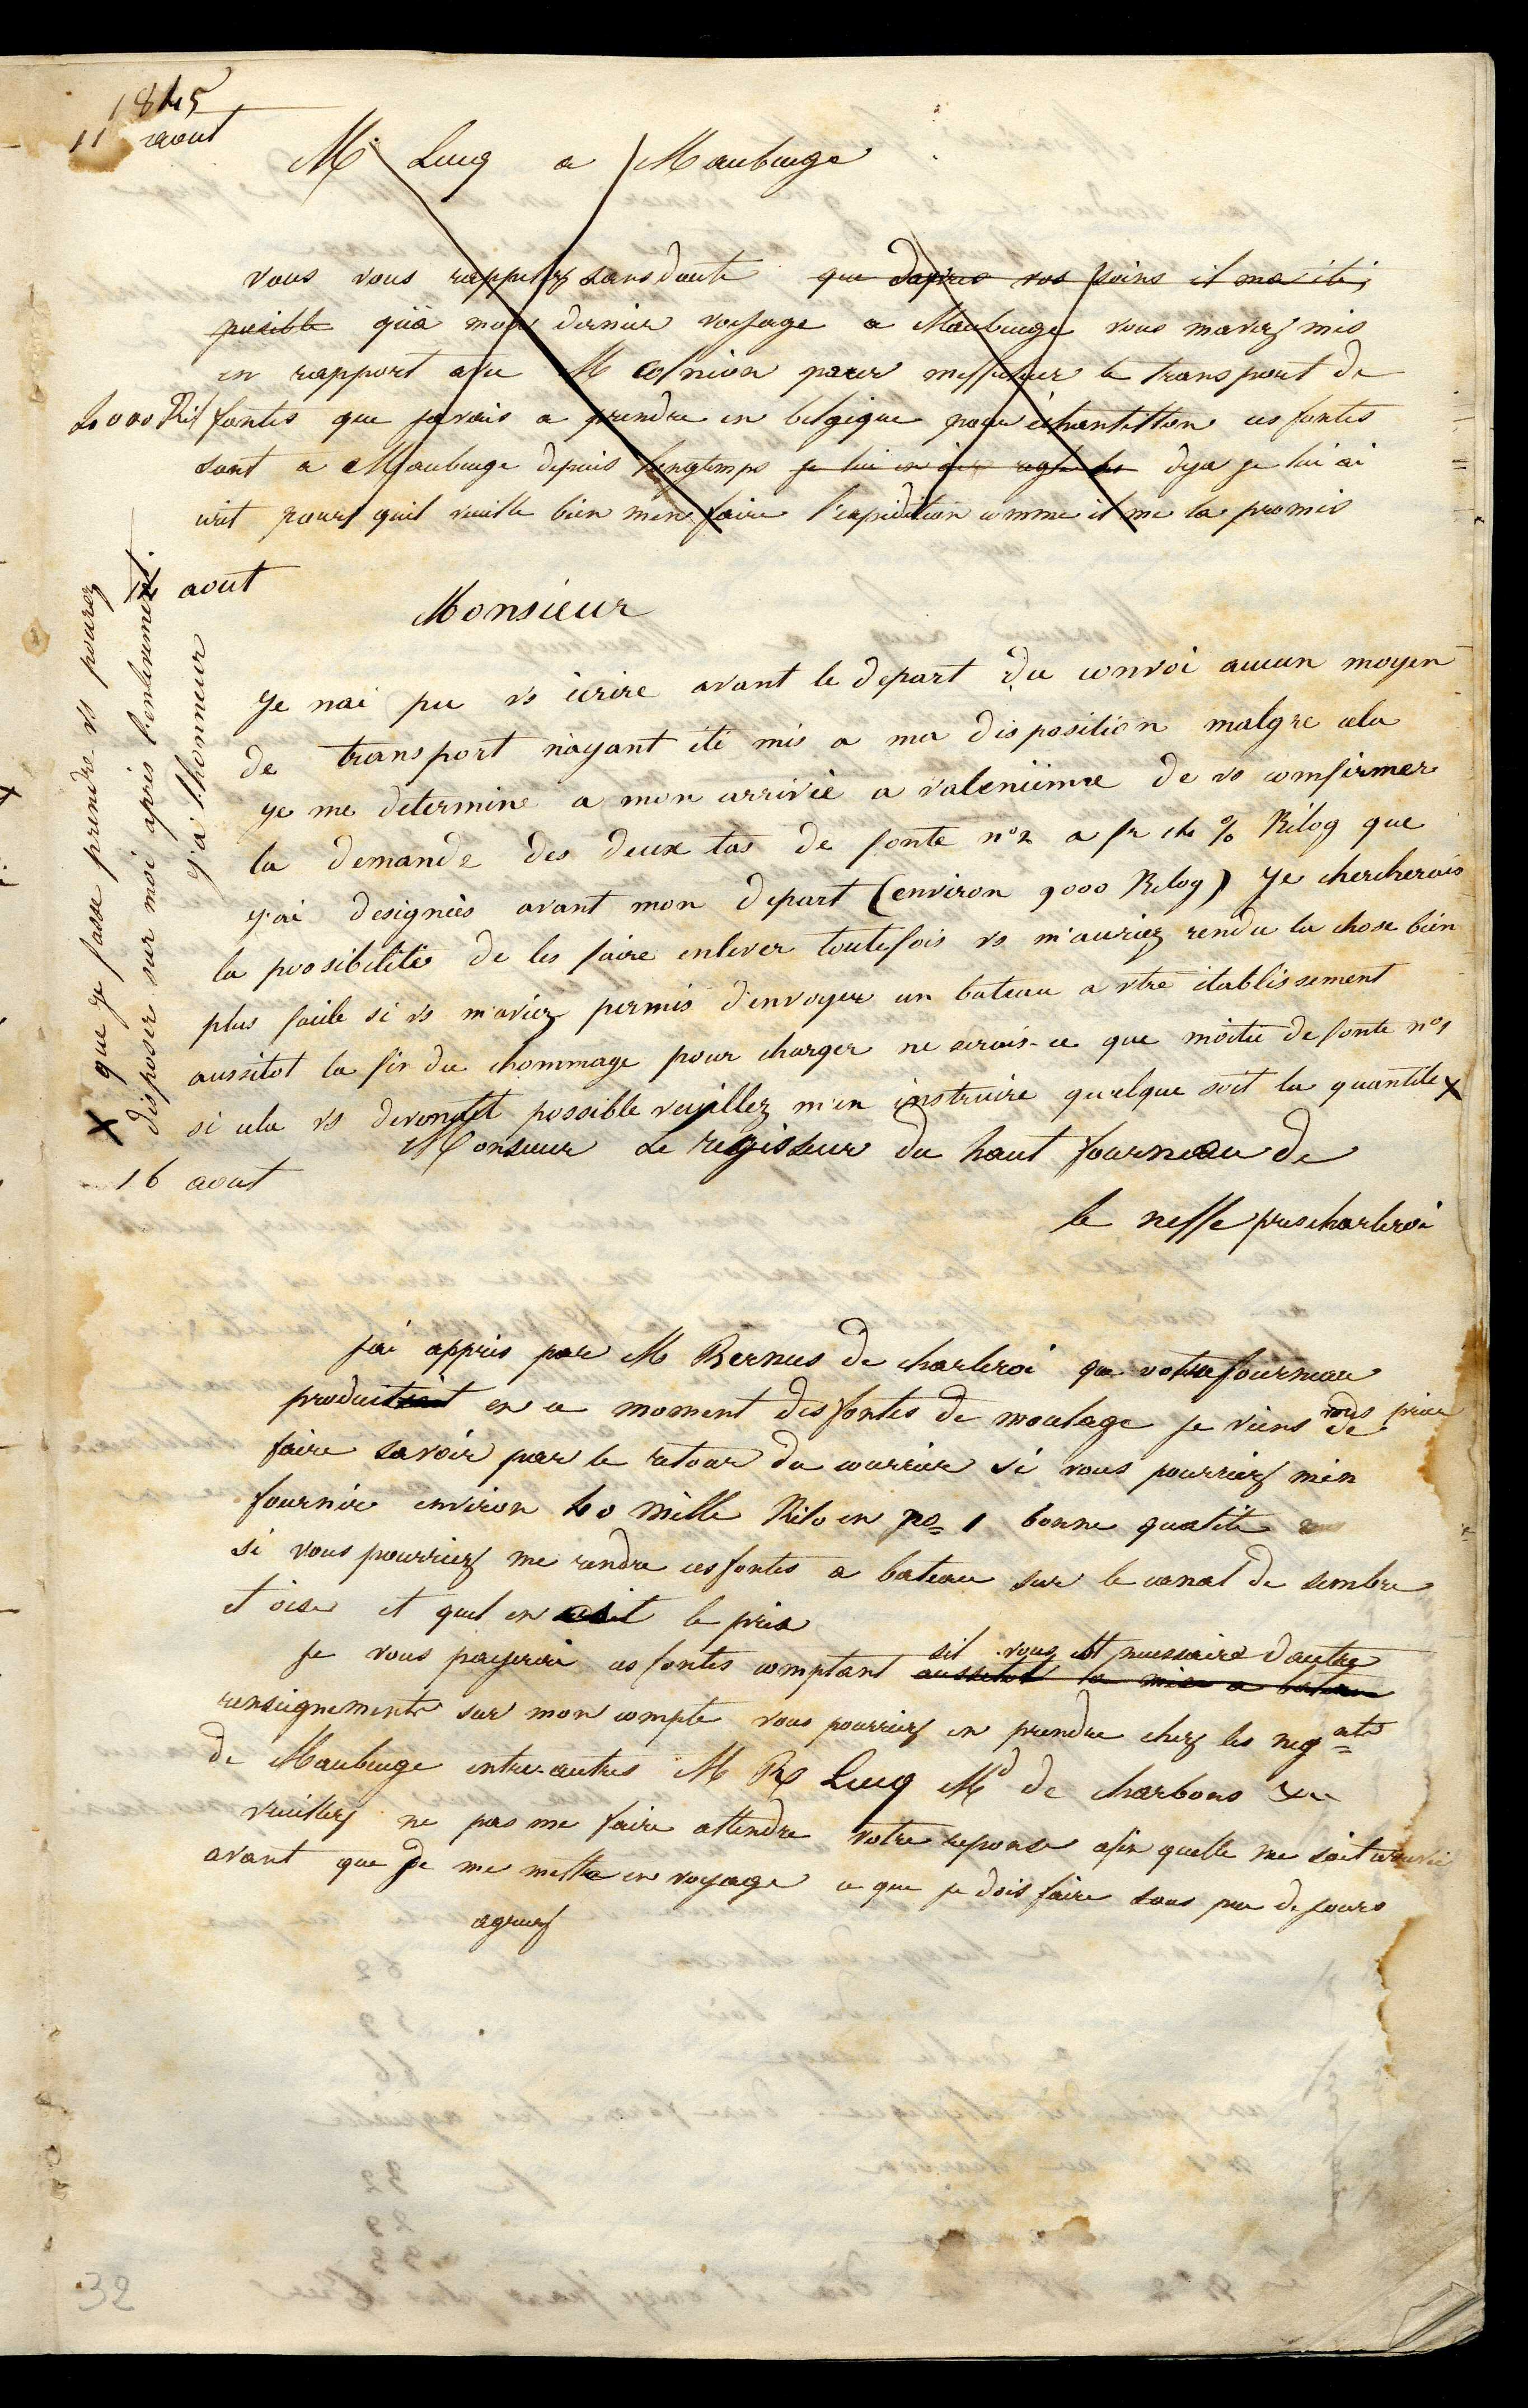 1845
11 aout
M. Lucq a Maubeuge
vous vous rappelez sans doute que dapres vos soins il ma été
possible qu'à mon dernier voyage a Maubeuge vous mavez mis
en rapport avec M pour meffectuer le transport de
fontes que javais a prendre en belgique pour échantillon ces fontes
sont a Maubeuge depuis longtemps je lui en ai deja je lui ai
ecrit pour quil veuille bien men faire l'expedition comme il me la promis
aout
Monsieur
Je nai pu vs écrire avant le depart du convoi aucun moyen
de transport n'ayant été mis a ma disposition malgre cela
je me determine a mon arrivée a valencienne de vs comfirmer
la demande des deux tas de fonte n° 2 a fr % Kilog que
j'ai designées avant mon depart (environ 9000 Kilog) Je chercherais
la possibilité de les faire enlever toutefois vs m'auriez rendu la chose bien
plus facile si vs m'aviez permis d'envoyer un bateau a vtre établissement
aussitot la fin du chommage pour charger ne serais-ce que moitié de fonte n° 1
si cela vs devenait possible veuillez m'en instruire quelque soit la quantité X
X que je fasse prendre vs pourez
disposer sur moi apres l'enlevement.
j'ai l'honneur
16 aout
Monsieur Le regisseur du haut fourneau de
le nesse pres charleroi
jai appris par M Bernus de charleroi que votre fourneau
produit en ce moment des fontes de moulage je viens vous prier de
faire savoir par le retour du courrier si vous pourriez men
fournir environ 40 mille Kilo en no 1 bonne qualité
si vous pourriez me rendre ces fontes a bateau sur le canal de sembre
et oise et quel en est le prix
je vous payerai ces fontes comptant aussitot la mise a bateau sil vous est necessaire dautre
renseignements sur mon compte vous pourriez en prendre chez les negats
de Maubeuge entre-autres M Lucq Md de charbons
veuillez ne pas me faire attendre votre reponse afin quelle me soit
avant que je me mette en voyage ce que je dois faire sous peu de jours
agreez
32